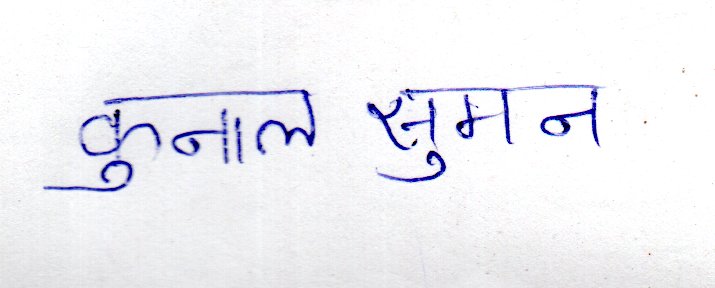 कुनाल सुमन